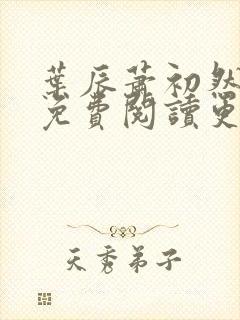 葉辰蕭初然
免費閱讀更
天秀弟子